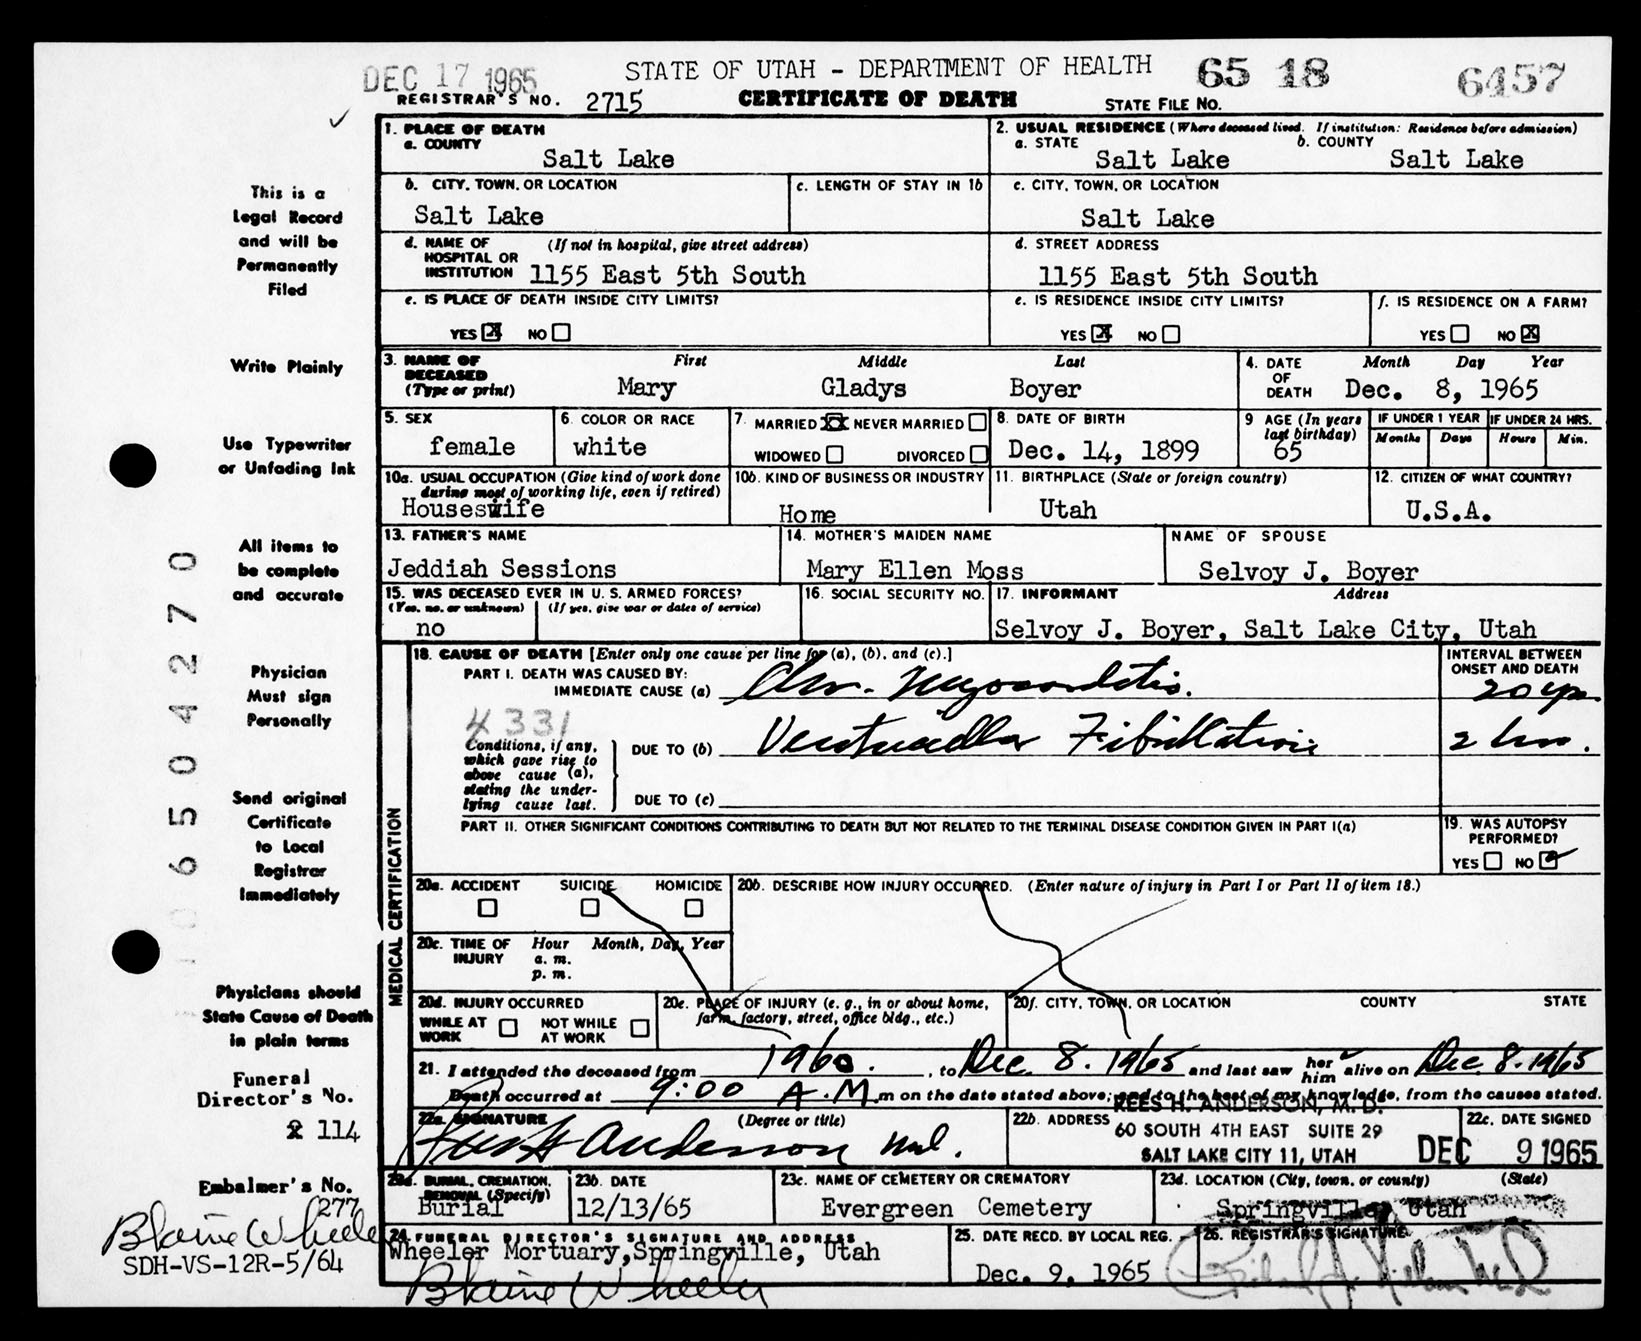 DEC 17 1965
STATE OF UTAH - DEPARTMENT OF HEALTH
65 18
6457
REGISTRAR'S NO. 2715
CERTIFICATE OF DEATH
STATE FILE NO.
1. PLACE OF DEATH
a. COUNTY
Salt Lake
2. USUAL RESIDENCE (Where deceased lived. If institution: Residence before admission)
a. STATE
Salt Lake
b. COUNTY
Salt Lake
b. CITY, TOWN, OR LOCATION
Salt Lake
c. LENGTH OF STAY IN 1b
c. CITY, TOWN, OR LOCATION
Salt Lake
d. NAME OF HOSPITAL OR INSTITUTION (If not in hospital, give street address)
1155 East 5th South
d. STREET ADDRESS
1155 East 5th South
e. IS PLACE OF DEATH INSIDE CITY LIMITS?
YES X NO
e. IS RESIDENCE INSIDE CITY LIMITS?
YES X NO
f. IS RESIDENCE ON A FARM?
YES NO X
3. NAME OF DECEASED (Type or print)
First Middle Last
Mary Gladys Boyer
4. DATE OF DEATH
Month Day Year
Dec. 8, 1965
5. SEX
female
6. COLOR OR RACE
white
7. MARRIED X NEVER MARRIED
WIDOWED DIVORCED
8. DATE OF BIRTH
Dec. 14, 1899
9 AGE (In years last birthday)
65
IF UNDER 1 YEAR
Months Days
IF UNDER 24 HRS.
Hours Min.
10a. USUAL OCCUPATION (Give kind of work done during most of working life, even if retired)
Houseswife
10b. KIND OF BUSINESS OR INDUSTRY
Home
11. BIRTHPLACE (State or foreign country)
Utah
12. CITIZEN OF WHAT COUNTRY?
U.S.A.
13. FATHER'S NAME
Jeddiah Sessions
14. MOTHER'S MAIDEN NAME
Mary Ellen Moss
NAME OF SPOUSE
Selvoy J. Boyer
15. WAS DECEASED EVER IN U.S. ARMED FORCES?
(Yes, no, or unknown) (If yes, give war or dates of service)
no
16. SOCIAL SECURITY NO.
17. INFORMANT Address
Selvoy J. Boyer, Salt Lake City, Utah
18. CAUSE OF DEATH [Enter only one cause per line for (a), (b), and (c).]
INTERVAL BETWEEN ONSET AND DEATH
PART I. DEATH WAS CAUSED BY:
IMMEDIATE CAUSE (a) Chr. Myocarditis. 20 yrs.
4331
Conditions, if any, which gave rise to above cause (a), stating the underlying cause last.
DUE TO (b) Ventricular Fibrillation 2 hrs.
DUE TO (c)
PART II. OTHER SIGNIFICANT CONDITIONS CONTRIBUTING TO DEATH BUT NOT RELATED TO THE TERMINAL DISEASE CONDITION GIVEN IN PART I(a)
19. WAS AUTOPSY PERFORMED?
YES NO ✓
MEDICAL CERTIFICATION
20a. ACCIDENT SUICIDE HOMICIDE
20b. DESCRIBE HOW INJURY OCCURRED. (Enter nature of injury in Part I or Part II of item 18.)
20c. TIME OF INJURY
Hour Month, Day, Year
a. m.
p. m.
20d. INJURY OCCURRED
WHILE AT WORK NOT WHILE AT WORK
20e. PLACE OF INJURY (e. g., in or about home, farm, factory, street, office bldg., etc.)
20f. CITY, TOWN, OR LOCATION COUNTY STATE
21. I attended the deceased from 1960. , to Dec. 8. 1965 and last saw her him alive on Dec. 8. 1965
Death occurred at 9:00 A.M. m on the date stated above; and to the best of my knowledge, from the causes stated.
22a. SIGNATURE (Degree or title)
Rees H Anderson M.D.
22b. ADDRESS
REES H. ANDERSON, M. D.
60 SOUTH 4TH EAST SUITE 29
SALT LAKE CITY 11, UTAH
22c. DATE SIGNED
DEC 9 1965
23a. BURIAL, CREMATION, REMOVAL (Specify)
Burial
23b. DATE
12/13/65
23c. NAME OF CEMETERY OR CREMATORY
Evergreen Cemetery
23d. LOCATION (City, town, or county) (State)
Springville, Utah
24. FUNERAL DIRECTOR'S SIGNATURE AND ADDRESS
Wheeler Mortuary, Springville, Utah
Blaine W Wheeler
25. DATE RECD. BY LOCAL REG.
Dec. 9, 1965
26. REGISTRAR'S SIGNATURE
This is a
Legal Record
and will be
Permanently
Filed
Write Plainly
Use Typewriter
or Unfading Ink
All items to
be complete
and accurate
Physician
Must sign
Personally
Send original
Certificate
to Local
Registrar
Immediately
Physicians should
State Cause of Death
in plain terms
Funeral
Director's No.
114
Embalmer's No.
277
Blaine W Wheeler
SDH-VS-12R-5/64
10 6 5 0 4 2 7 0